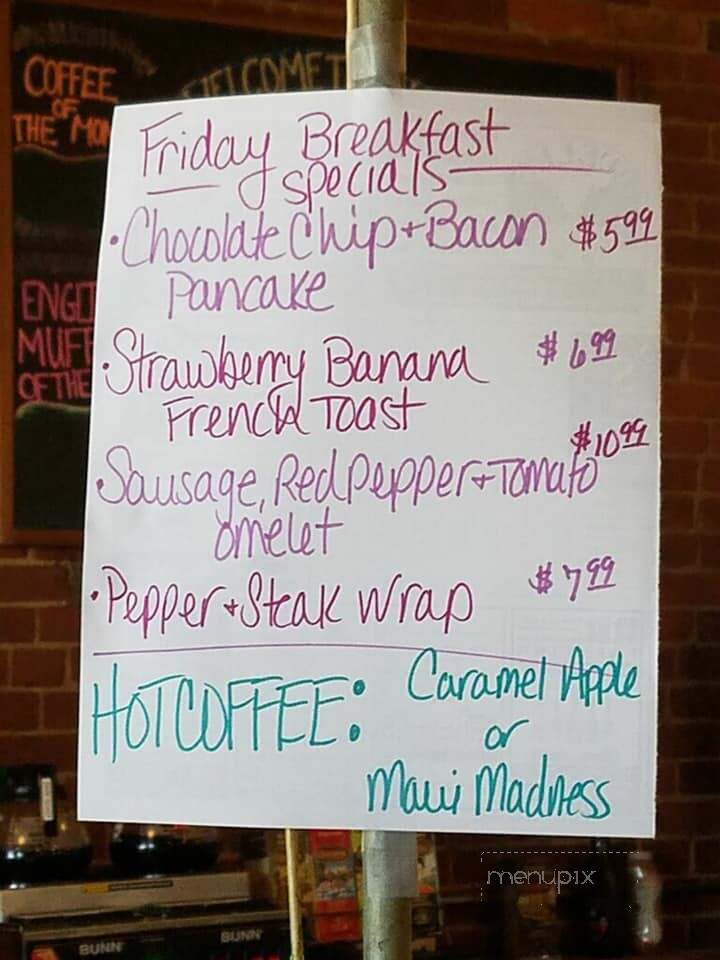 COFFEE
OF
THE
WELCOME
Friday Breakfast
specials
•Chocolate Chip+Bacon $5.99
Pancake
•Strawberry Banana $6.99
French Toast
$10.99
•Sausage, Red Pepper+Tomato
omelet
•Pepper+Steak Wrap $7.99
HOT COFFEE: Caramel Apple
or
Maui Madness
MUFF
OF THE
menupix
BUNN
BUNN